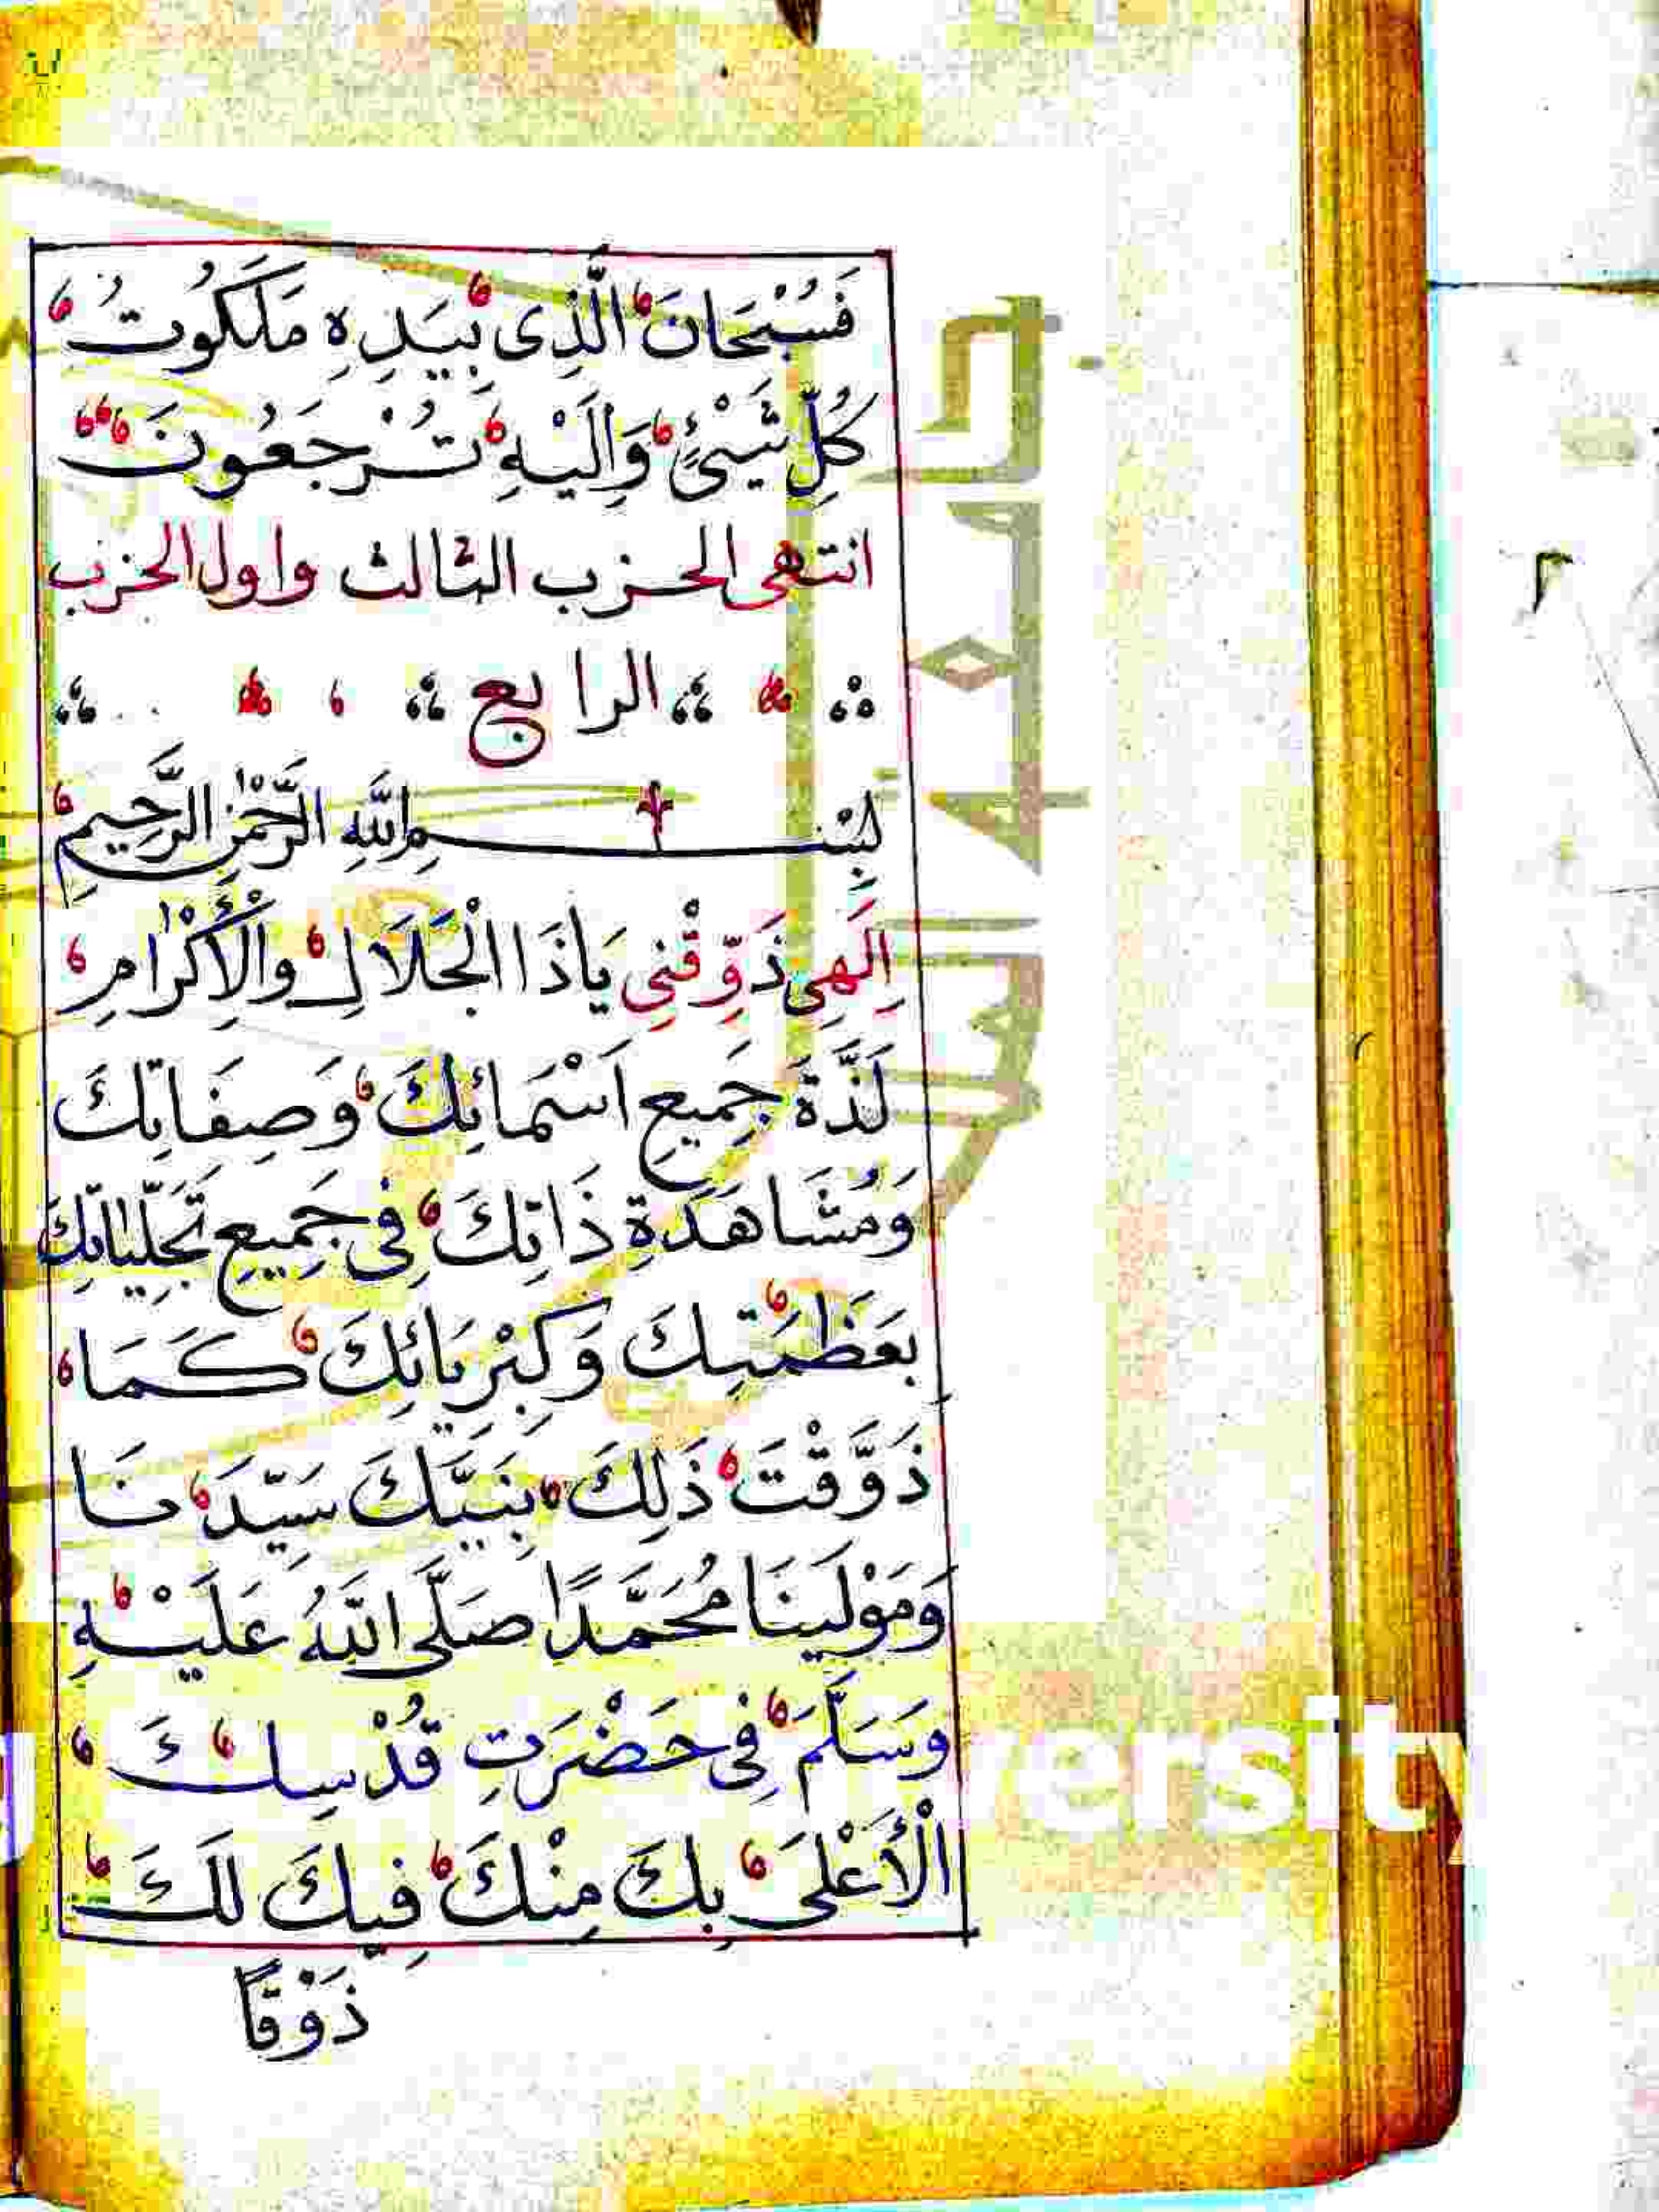 فَسُبْحَانَ الَّذِى بِيَدِهِ مَلَكُوتُ
كُلِّ شَيْئٍ وَاِلَيْهِ تُرْجَعُونَ
انتهى الحزب الثالث واول الحزب
الرابع
بِسْمِ اللّٰهِ الرَّحْمٰنِ الرَّحِيمِ
اِلَهِى ذَوِّقْنِى يَاذَا الْجَلَالِ وَالْاِكْرَامِ
لَذَّةَ جَمِيعِ اَسْمَائِكَ وَصِفَاتِكَ
وَمُشَاهَدَةِ ذَاتِكَ فِى جَمِيعِ تَجَلِّيَاتِكَ
بِعَظَمَتِكَ وَكِبْرِيَائِكَ كَمَا
ذَوَّقْتَ ذَلِكَ بِنَبِيِّكَ سَيِّدَنَا
وَمَوْلَينَا مُحَمَّدًا صَلَّى اللّٰهُ عَلَيْهِ
وَسَلَّمَ فِى حَضْرَتِ قُدْسِكَ
الْأَعْلَى بِكَ مِنْكَ فِيكَ لَكَ
ذَوْقًا
versity